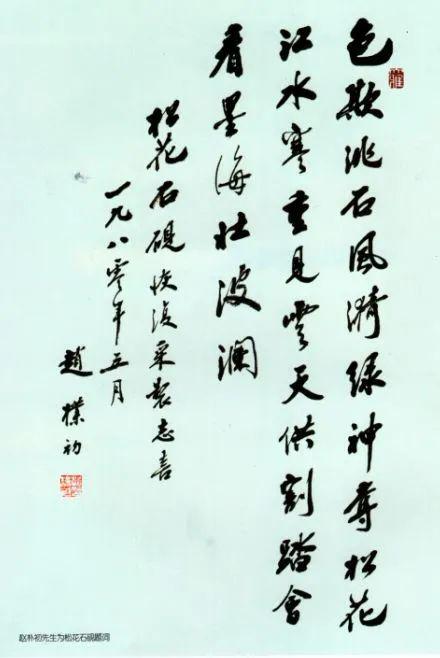 色欺洮石風漪绿神奪松花
江水寒重見雲天供割踏會
看墨海壯波澜
松花石硯恢復采製志喜
一九八零年五月
趙樸初
赵朴初先生为松花石砚题词